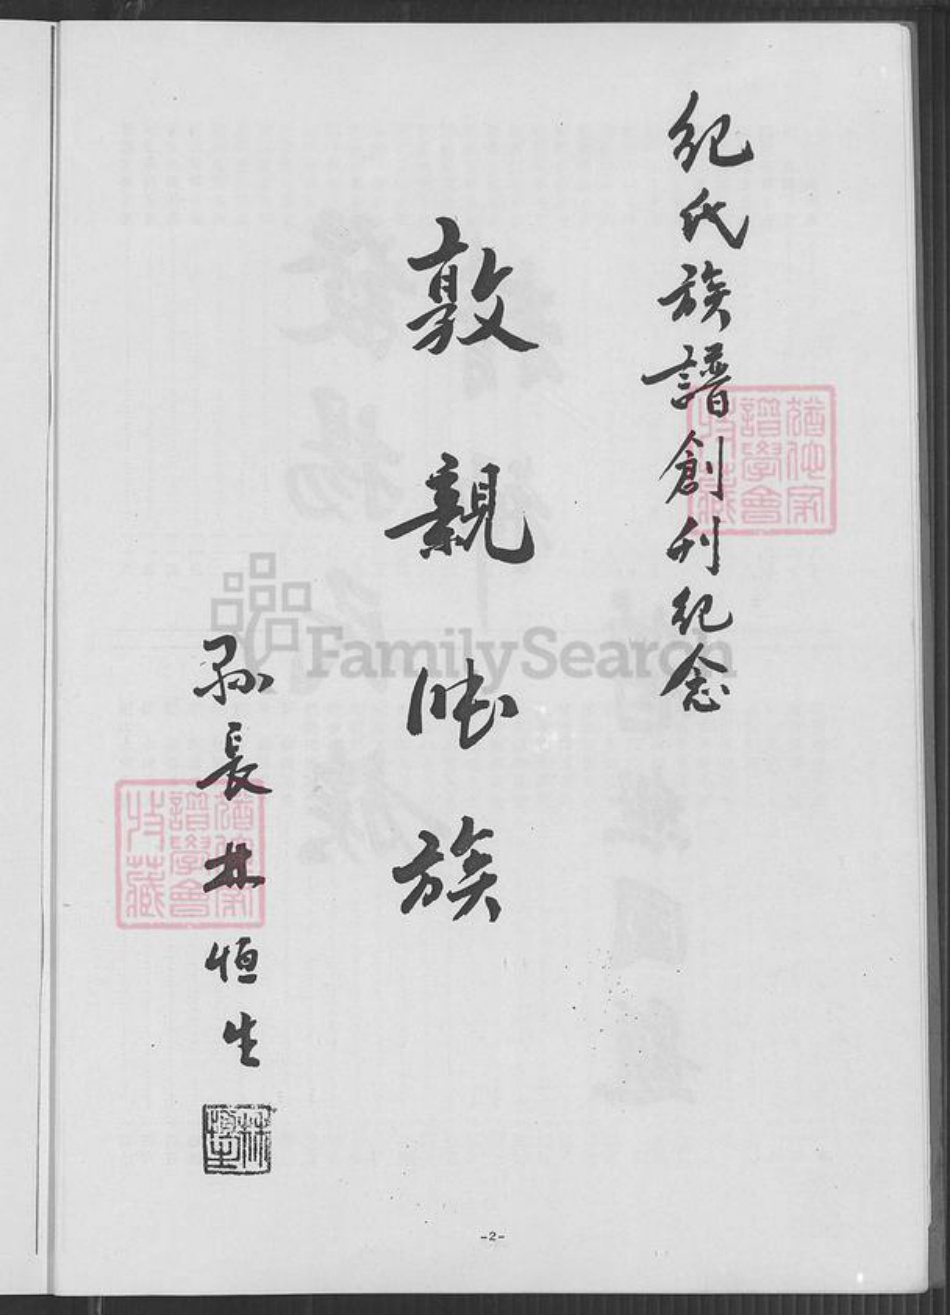 紀氏族譜創刊紀念
敦親睦族
縣長林恒生
林恒生
猶他家譜學會收藏
猶他家譜學會收藏
FamilySearch
-2-